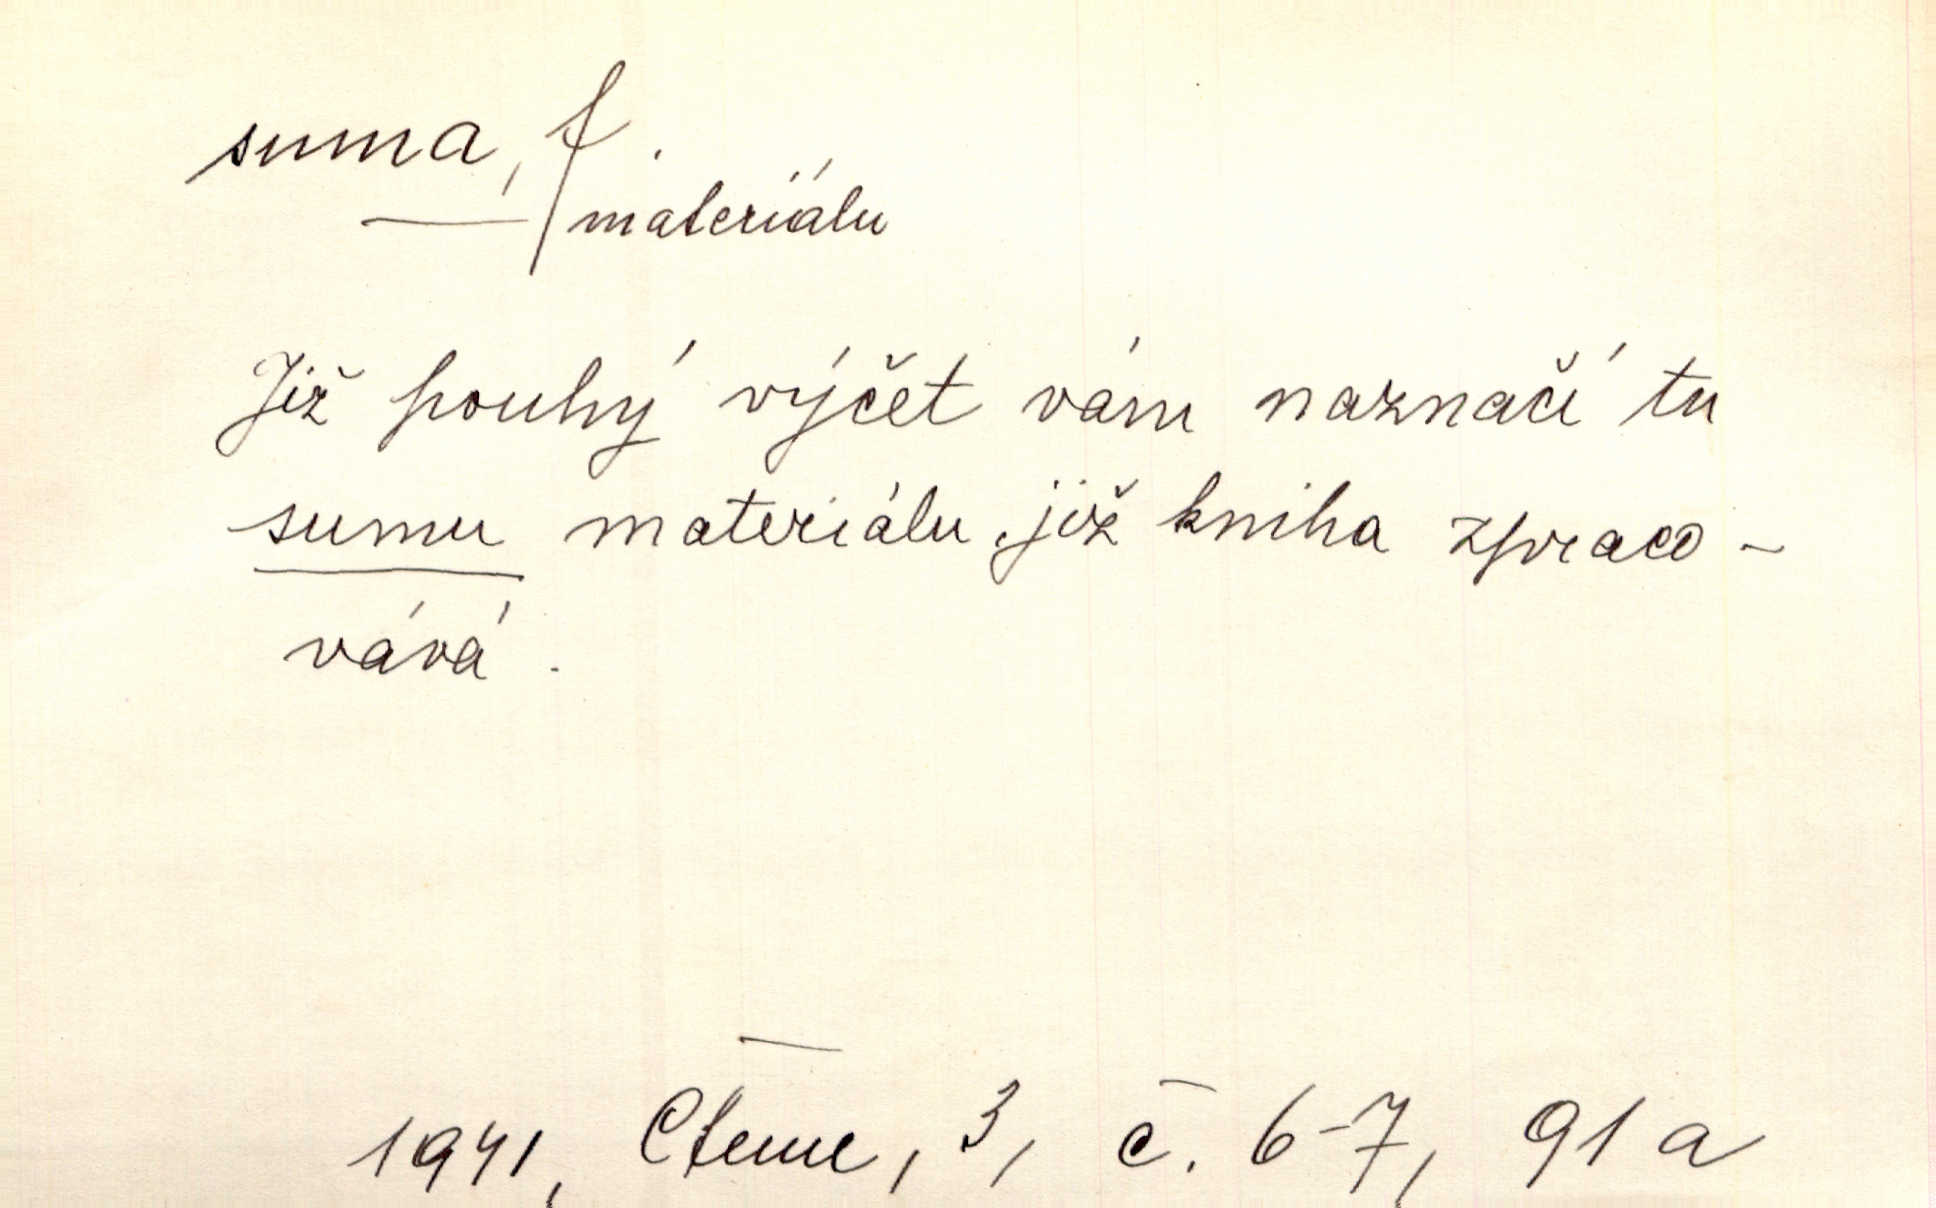 suma, f.
— materiálu
Již pouhý výčet vám naznačí tu
sumu materiálu, již kniha zpraco-
vává.
1941, Čteme, 3, č. 6-7, 91a